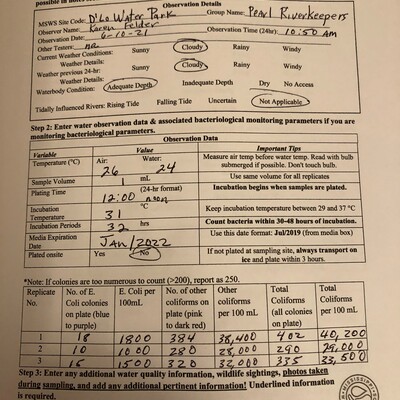 possible in notes
Observation Details
MSWS Site Code: D'Lo Water Park Group Name: Pearl Riverkeepers
Observer Name: Karen Felder
Observation Date: 6-10-21 Observation Time (24hr): 10:50 AM
Other Testers: na
Current Weather Conditions: Sunny Cloudy Rainy Windy
Weather Details:
Weather previous 24-hr: Sunny Cloudy Rainy Windy
Weather Details:
Waterbody Condition: Adequate Depth Inadequate Depth Dry No Access
Tidally Influenced Rivers: Rising Tide Falling Tide Uncertain Not Applicable
Step 2: Enter water observation data & associated bacteriological monitoring parameters if you are
monitoring bacteriological parameters.
Observation Data
Variable Value Important Tips
Temperature (°C) Air: 26 Water: 24 Measure air temp before water temp. Read with bulb
submerged if possible. Don't touch bulb.
Sample Volume 1 mL Use same volume for all replicates
Plating Time 12:00 noon (24-hr format) Incubation begins when samples are plated.
Incubation
Temperature 31 °C Keep incubation temperature between 29 and 37 °C
Incubation Periods 32 hrs Count bacteria within 30-48 hours of incubation.
Media Expiration
Date Jan/2022 Use this date format: Jul/2019 (from media box)
Plated onsite Yes No If not plated at sampling site, always transport on
ice and plate within 3 hours.
*Note: If colonies are too numerous to count (>200), report as 250.
Replicate
No. No. of E.
Coli colonies
on plate (blue
to purple) E. Coli per
100mL No. of other
coliforms on
plate (pink
to dark red) Other
coliforms
per 100 mL Total
Coliforms
(all colonies
on plate) Total
Coliforms
per 100 mL
1 18 1800 384 38,400 402 40,200
2 10 1000 280 28,000 290 29,000
3 15 1500 320 32,000 335 33,500
Step 3: Enter any additional water quality information, wildlife sightings, photos taken
during sampling, and add any additional pertinent information! Underlined information
is required.